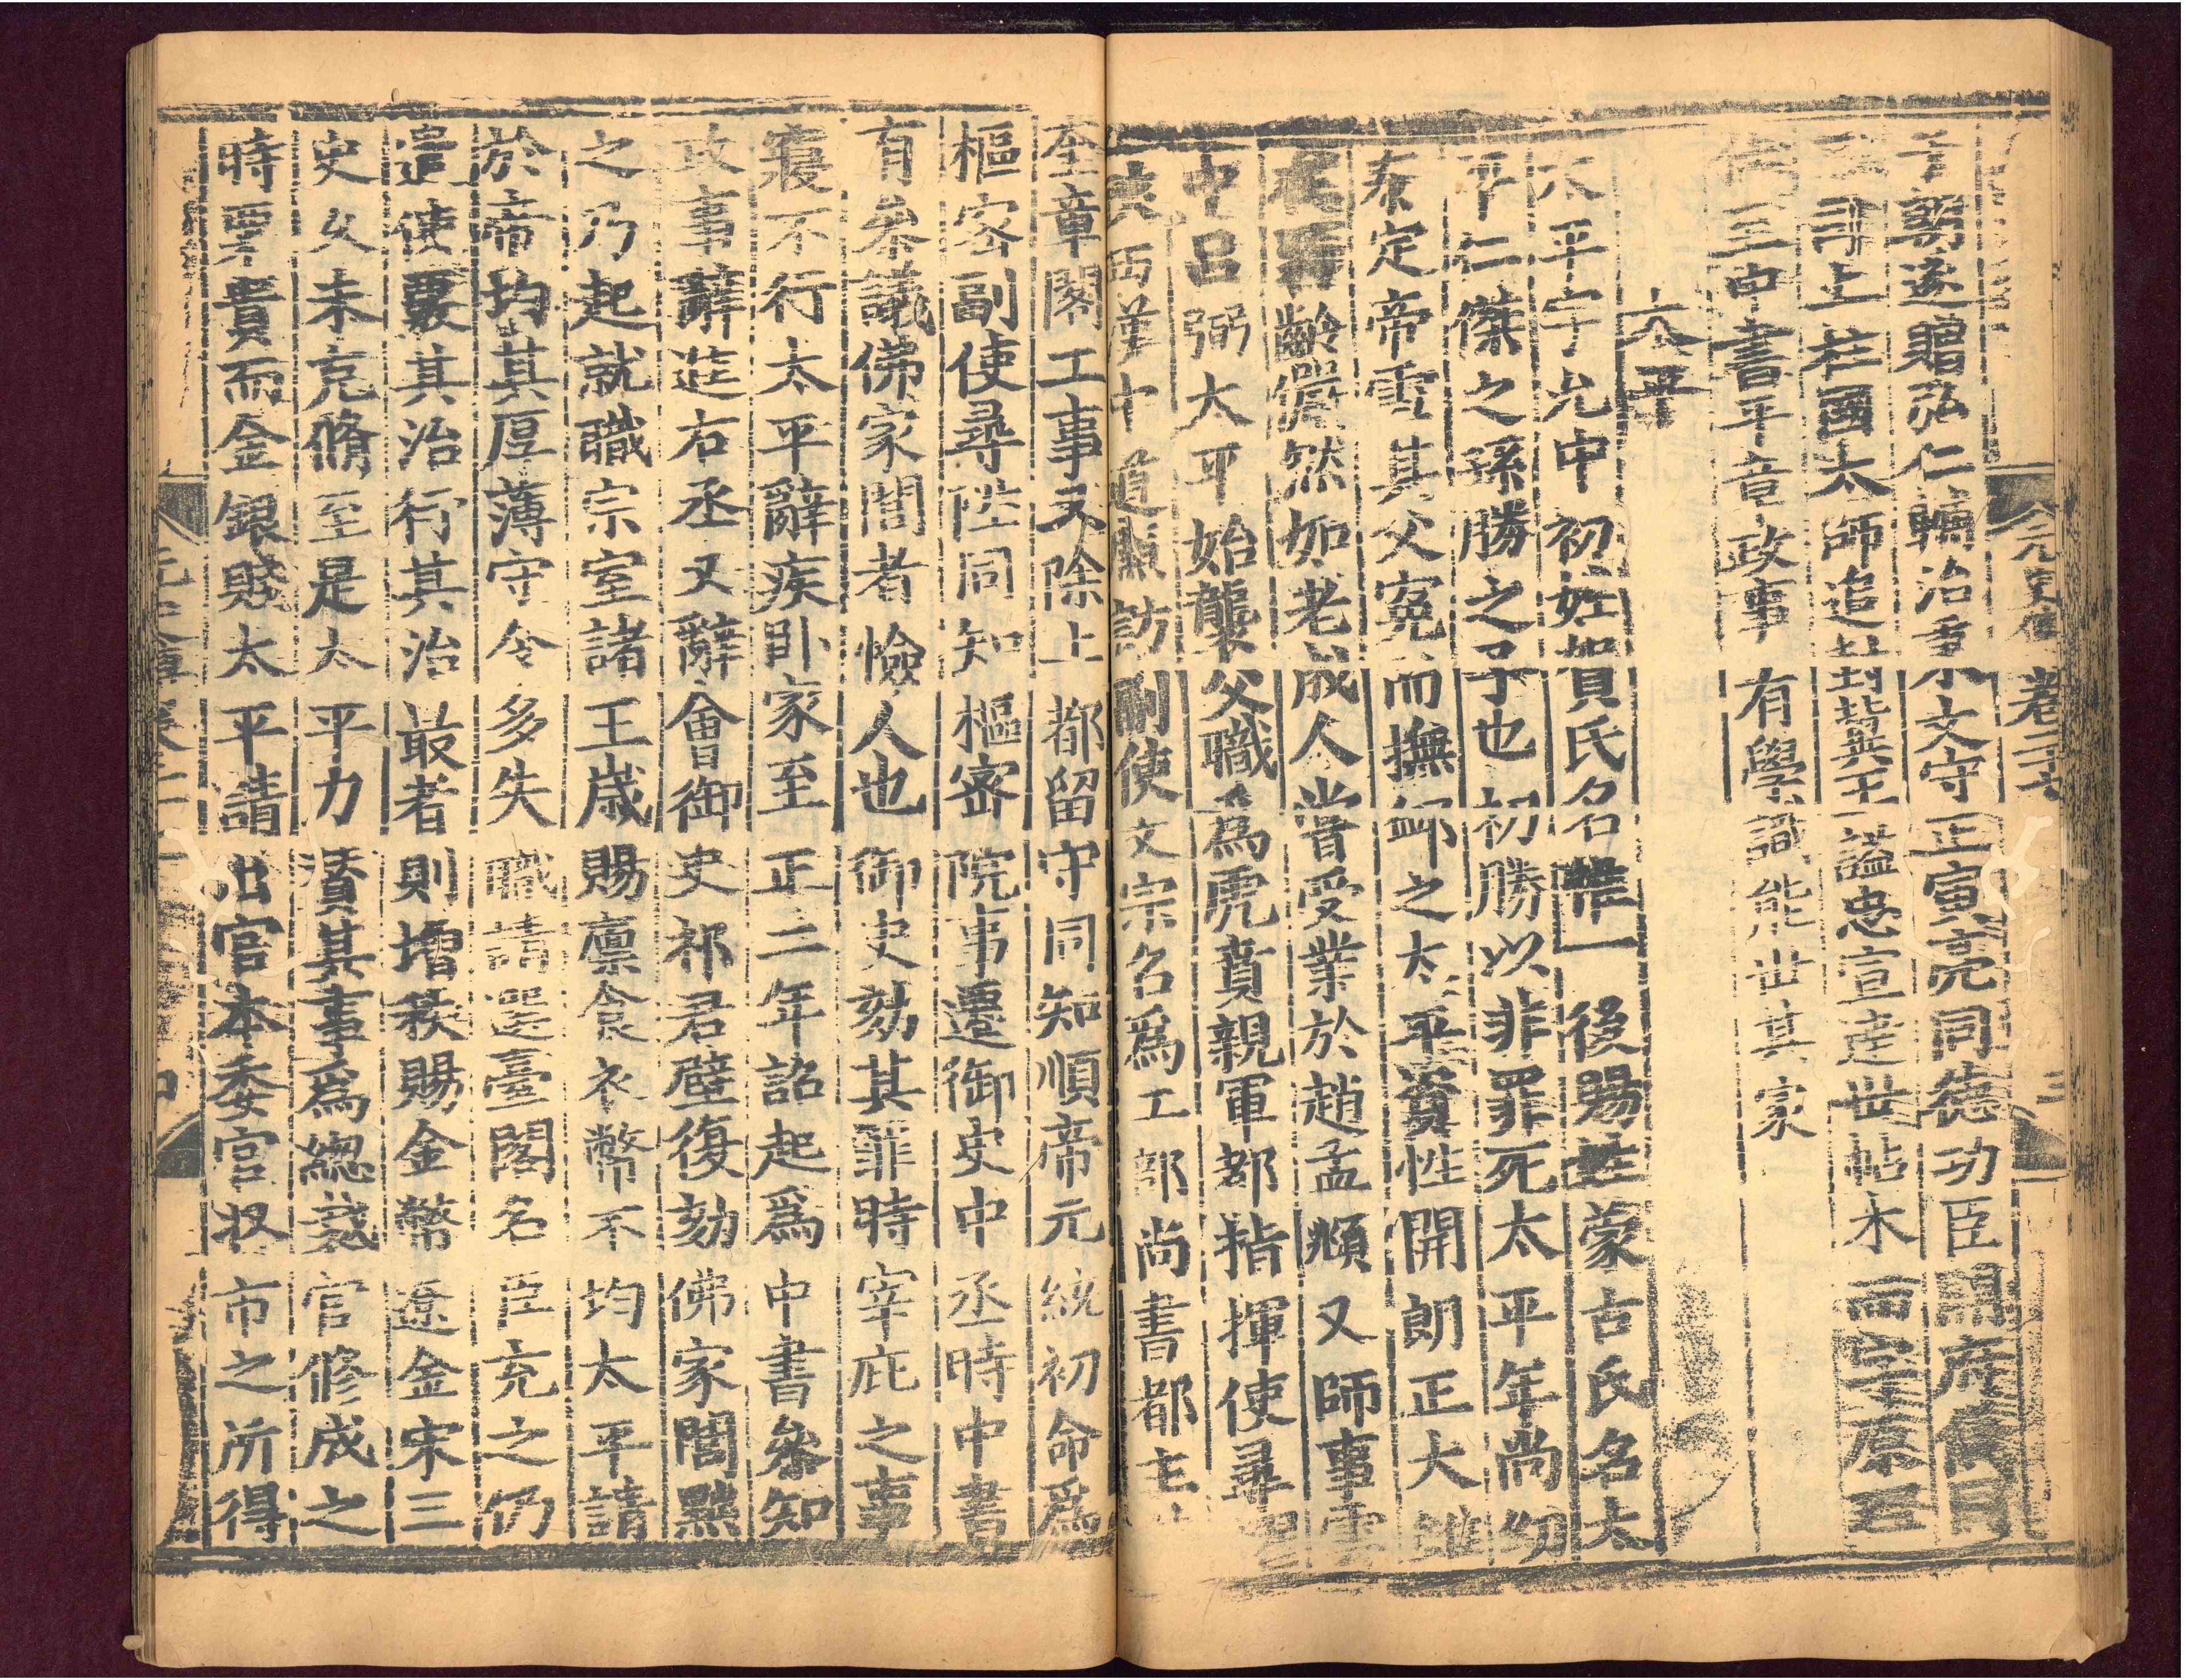 元史傳 卷二十六 三
言勗遂贈弘仁輔治秉文守正寅亮同德功臣開府儀同
三司上柱國太師追封冀王諡忠宣達世帖木而字原理
仕至中書平章政事有學識能世其家
太平
太平字允中初姓賀氏名惟一後賜姓蒙古氏名太
平仁傑之孫勝之子也初勝以非罪死太平年尚幼
泰定帝雪其父冤而撫卹之太平資性開朗正大雖
在弱齡儼然如老成人嘗受業於趙孟頫又師事雲
中呂弼太平始襲父職爲虎賁親軍都指揮使尋擢
陝西漢中道廉訪副使文宗召爲工部尚書都主
奎章閣工事又除上都留守同知順帝元統初命爲
樞密副使尋陞同知樞密院事遷御史中丞時中書
有叅議佛家閭者憸人也御史劾其罪時宰庇之事
寢不行太平辭疾臥家至正二年詔起爲中書叅知
政事辭遷右丞又辭會御史祁君璧復劾佛家閭黜
之乃起就職宗室諸王歲賜廪食衣幣不均太平請
於帝均其厚薄守令多失職請選臺閣名臣充之仍
遣使覈其治行其治最者則增秩賜金幣遼金宋三
史久未克脩至是太平力賛其事爲總裁官修成之
時粟貴而金銀賤太平請出官本委官收市之所得
元史傳卷二十 四